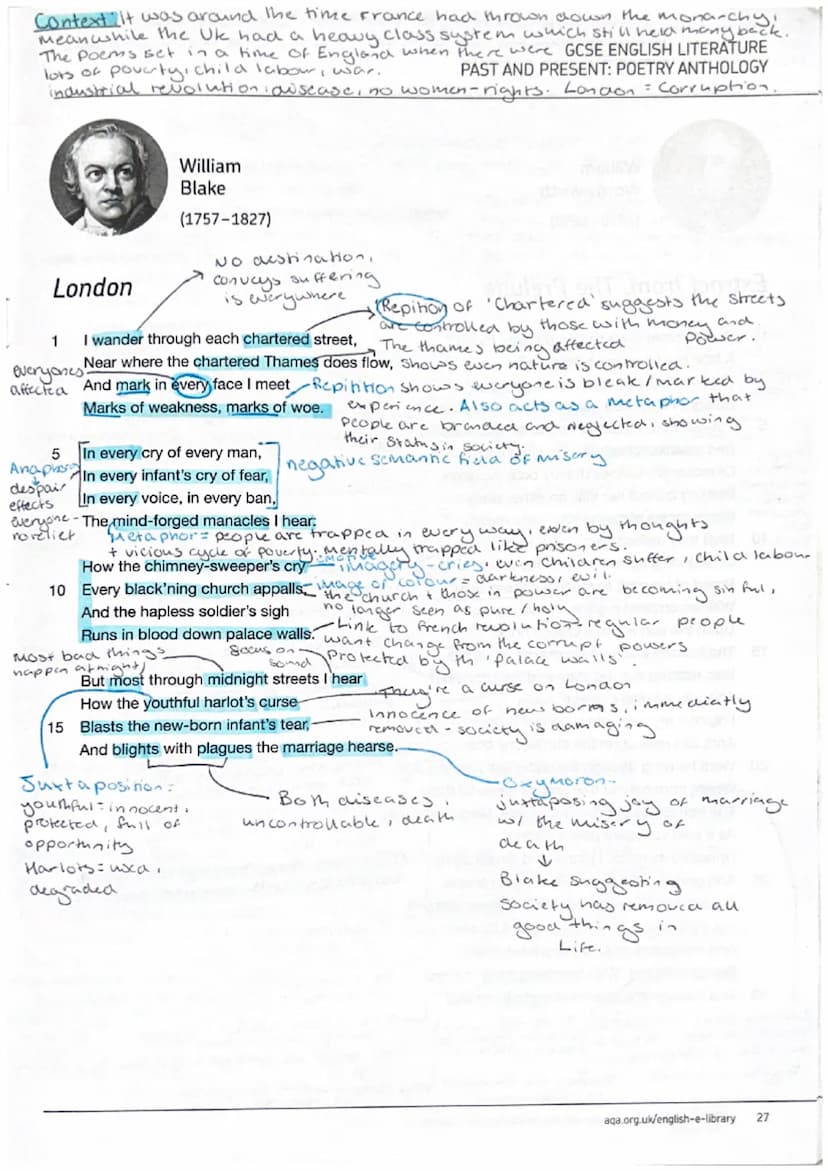 Context It was around the time France had thrown down the monarchy,
meanwhile the UK had a heavy class system which still held many back.
The poems set in a time of England when there were
lots of poverty, child labour, war.
industrial revolution, disease, no women-rights. London = Corruption.
GCSE ENGLISH LITERATURE
PAST AND PRESENT: POETRY ANTHOLOGY
William
Blake
(1757–1827)
No destination,
conveys suffering
is everywhere
London
Repition of 'Chartered' suggests the streets
are controlled by those with money and
Power.
The thames being affected
shows even nature is controlled.
1 I wander through each chartered street,
Near where the chartered Thames does flow,
everyones
affected
And mark in every face I meet
Marks of weakness, marks of woe.
Repitition shows everyone is bleak/marked by
experience. Also acts as a metaphor that
people are branded and neglected, showing
their status in society.
5 In every cry of every man,
In every infant's cry of fear,
In every voice, in every ban,
The mind-forged manacles I hear:
Anaphora
despair
effects
everyone-
no relief
negative semantic field of misery
Metaphor = people are trapped in every way, even by thoughts
+ vicious cycle of poverty. Mentally trapped like prisoners.
How the chimney-sweeper's cry
10 Every black'ning church appalls,
And the hapless soldier's sigh
Runs in blood down palace walls.
emotive
imagery - cries, even children suffer, child labour
image of colour = darkness, evil.
the church + those in power are becoming sinful,
no longer seen as pure/holy
Link to French revolution - regular people
want change from the corrupt powers
Protected by th 'palace walls'.
Most bad things
happen at night
focus on
sound
But most through midnight streets I hear
How the youthful harlot's curse
15 Blasts the new-born infant's tear,
And blights with plagues the marriage hearse.
They're a curse on London
Innocence of new borns, immediately
removed - society is damaging
Juxtaposition =
youthful = innocent,
protected, full of
opportunity
Harlots = used,
degraded
Both diseases,
uncontrollable, death
Oxymoron-
juxtaposing joy of marriage
w/ the misery of
death
Blake suggesting
society has removed all
good things in
Life.
aqa.org.uk/english-e-library 27